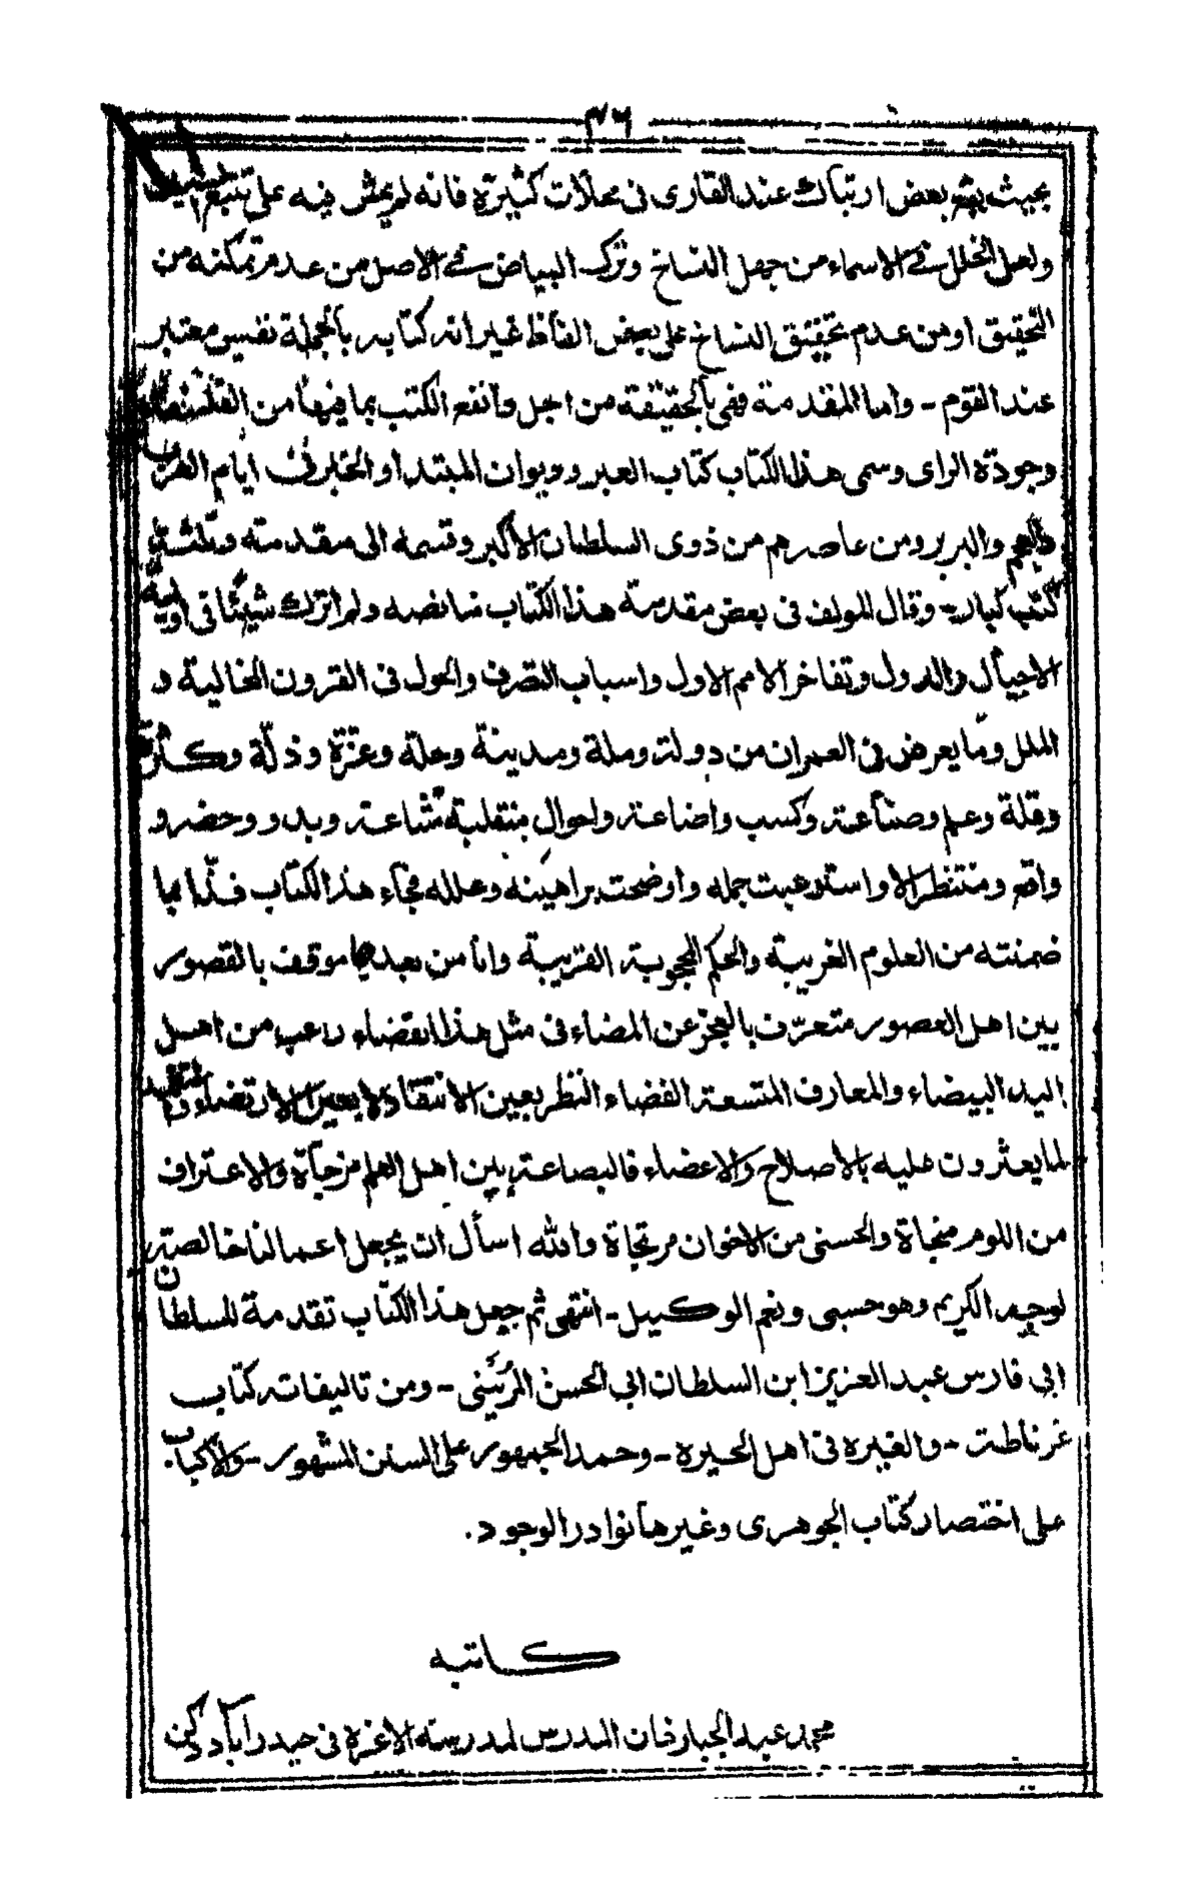 ٣٦
بحيث يقع بعض ارتباك عند القارى فى محلات كثيرة فانه لم يمش فيه على تتبع
ولعل الخلل فى الاسماء من جهل النساخ وترك البياض فى الاصل من عدم تمكنه من
التحقيق او من عدم تحقيق النساخ على بعض الفاظ غير انه كتابه بالجملة نفيس معتبر
عند القوم - واما المقدمة ففى بالحقيقة من اجل وانفع الكتب بما فيها من
وجودة الراى وسمى هذا الكتاب كتاب العبر وديوان المبتدا والخبر فى ايام العرب
والعجم والبربر ومن عاصرهم من ذوى السلطان الاكبر وقسمه الى مقدمة وثلثة
كتب كبار - وقال المولف فى بعض مقدمة هذا الكتاب ما نصه ولم اترك شيئا فى اولية
الاجيال والدول وتفاخر الامم الاول واسباب التصرف والحول فى القرون الخالية و
الملل وما يعرض فى العمران من دولة وملة ومدينة وحلة وعزة وذلة وكثرة
وقلة وعلم وصناعة وكسب واضاعة واحوال منقلبة مشاعة وبدو وحضر و
واقع ومنتظر الا واستوعبت جمله واوضحت براهينه وعلله فجاء هذا الكتاب فذا بما
ضمنته من العلوم الغريبة والحكم المحجوبة القريبة وانا من بعدها موقف بالقصور
بين اهل العصور متعرف بالعجز عن المضاء فى مثل هذا القضاء راغب من اهل
اليد البيضاء والمعارف المتسعة الفضاء النظر بعين الانتقاد لا بعين الارتضاء
لما يعثرون عليه بالاصلاح والاغضاء فالبضاعة بين اهل العلم مزجاة والاعتراف
من اللوم منجاة والحسنى من الاخوان مرتجاة والله اسأل ان يجعل اعمالنا خالصة
لوجهه الكريم وهو حسبى ونعم الوكيل - انتهى ثم جعل هذا الكتاب تقدمة للسلطان
ابى فارس عبد العزيز ابن السلطان ابى الحسن المرينى - ومن تاليفاته كتاب
غرناطة - والغيره فى اهل الحيره - وحمد الجمهور على السنن المشهور -
على اختصار كتاب الجوهرى وغيرها نوادر الوجود .
كاتبه
محمد عبد الجبار خان المدرس لمدرسة الاعزة فى حيدرآباد دكن